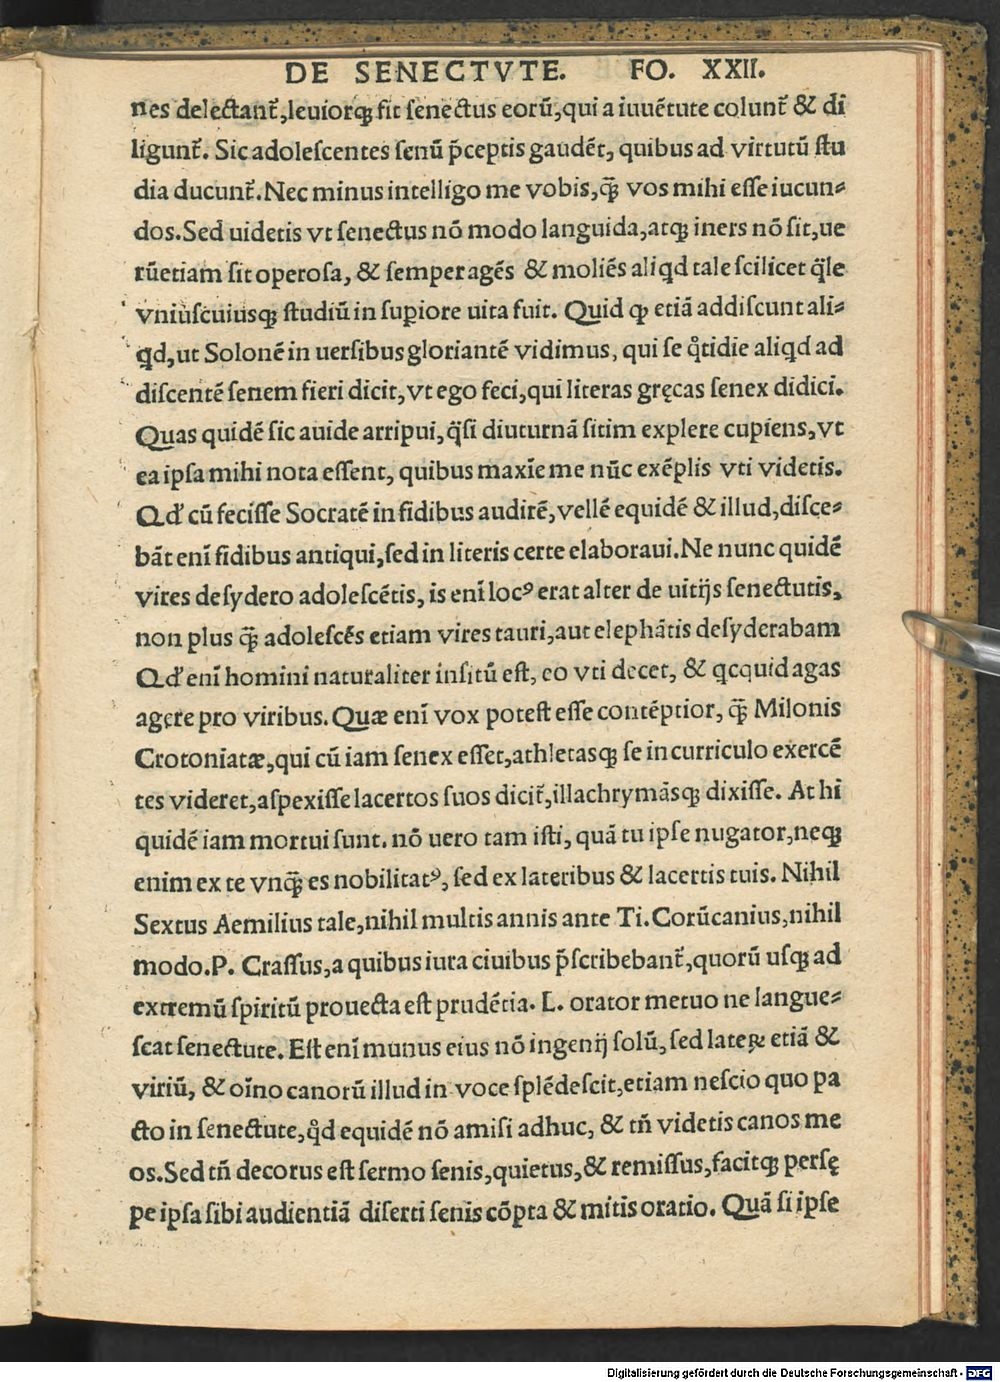 DE SENECTVTE. FO. XXII.
nes delectant᷑,leuiorq́ꝫ fit ſenectus eorū,qui a iuuētute colunt᷑ & di
ligunt᷑. Sic adoleſcentes ſenū p̄ceptis gaudēt, quibus ad virtutū ſtu
dia ducunt᷑. Nec minus intelligo me vobis,q̄ꝫ vos mihi eſſe iucun⸗
dos. Sed uidetis vt ſenectus nō modo languida,atqꝫ iners nō ſit,ue
rūetiam ſit operoſa, & ſemper agēs & moliēs aliqd tale ſcilicet q̄le
vniuſcuiusqꝫ ſtudiū in ſupiore uita fuit. Quid ꝙ etiā addiſcunt ali⸗
qd,ut Solonē in uerſibus gloriantē vidimus, qui ſe qͦtidie aliqd ad
diſcentē ſenem fieri dicit, vt ego feci,qui literas gręcas ſenex didici.
Quas quidē ſic auide arripui,q̄ſi diuturnā ſitim explere cupiens,vt
ea ipſa mihi nota eſſent, quibus maxīe me nūc exēplis vti videtis.
Qd' cū feciſſe Socratē in fidibus audirē,vellē equidē & illud,diſce⸗
bāt enī fidibus antiqui,ſed in literis certe elaboraui. Ne nunc quidē
vires deſydero adoleſcētis, is enī locꝰ erat alter de uitijs ſenectutis,
non plus q̄ꝫ adoleſcēs etiam vires tauri,aut elephātis deſyderabam
Qd' enī homini naturaliter inſitū eſt, eo vti decet, & qcquid agas
agere pro viribus. Quæ enī vox poteſt eſſe contēptior, q̄ꝫ Milonis
Crotoniatæ,qui cū iam ſenex eſſet,athletasqꝫ ſe in curriculo exercē
tes videret,aſpexiſſe lacertos ſuos dicit᷑,illachrymāsqꝫ dixiſſe. At hi
quidē iam mortui ſunt. nō uero tam iſti, quā tu ipſe nugator,neqꝫ
enim ex te vnq̄ꝫ es nobilitatꝰ, ſed ex lateribus & lacertis tuis. Nihil
Sextus Aemilius tale,nihil multis annis ante Ti. Corūcanius,nihil
modo. P. Craſſus,a quibus iura ciuibus p̄ſcribebant᷑,quorū uſqꝫ ad
extremū ſpiritū prouecta eſt prudētia. L. orator metuo ne langue⸗
ſcat ſenectute. Eſt enī munus eius nō ingenij ſolū, ſed lateꝝ etiā &
viriū, & oīno canorū illud in voce ſplēdeſcit,etiam neſcio quo pa
cto in ſenectute,qͦd equidē nō amiſi adhuc, & tn̄ videtis canos me
os. Sed tn̄ decorus eſt ſermo ſenis,quietus,& remiſſus,facitqꝫ perſę
pe ipſa ſibi audientiā diſerti ſenis cōpta & mitis oratio. Quā ſi ipſe
Digitalisierung gefördert durch die Deutsche Forschungsgemeinschaft - DFG